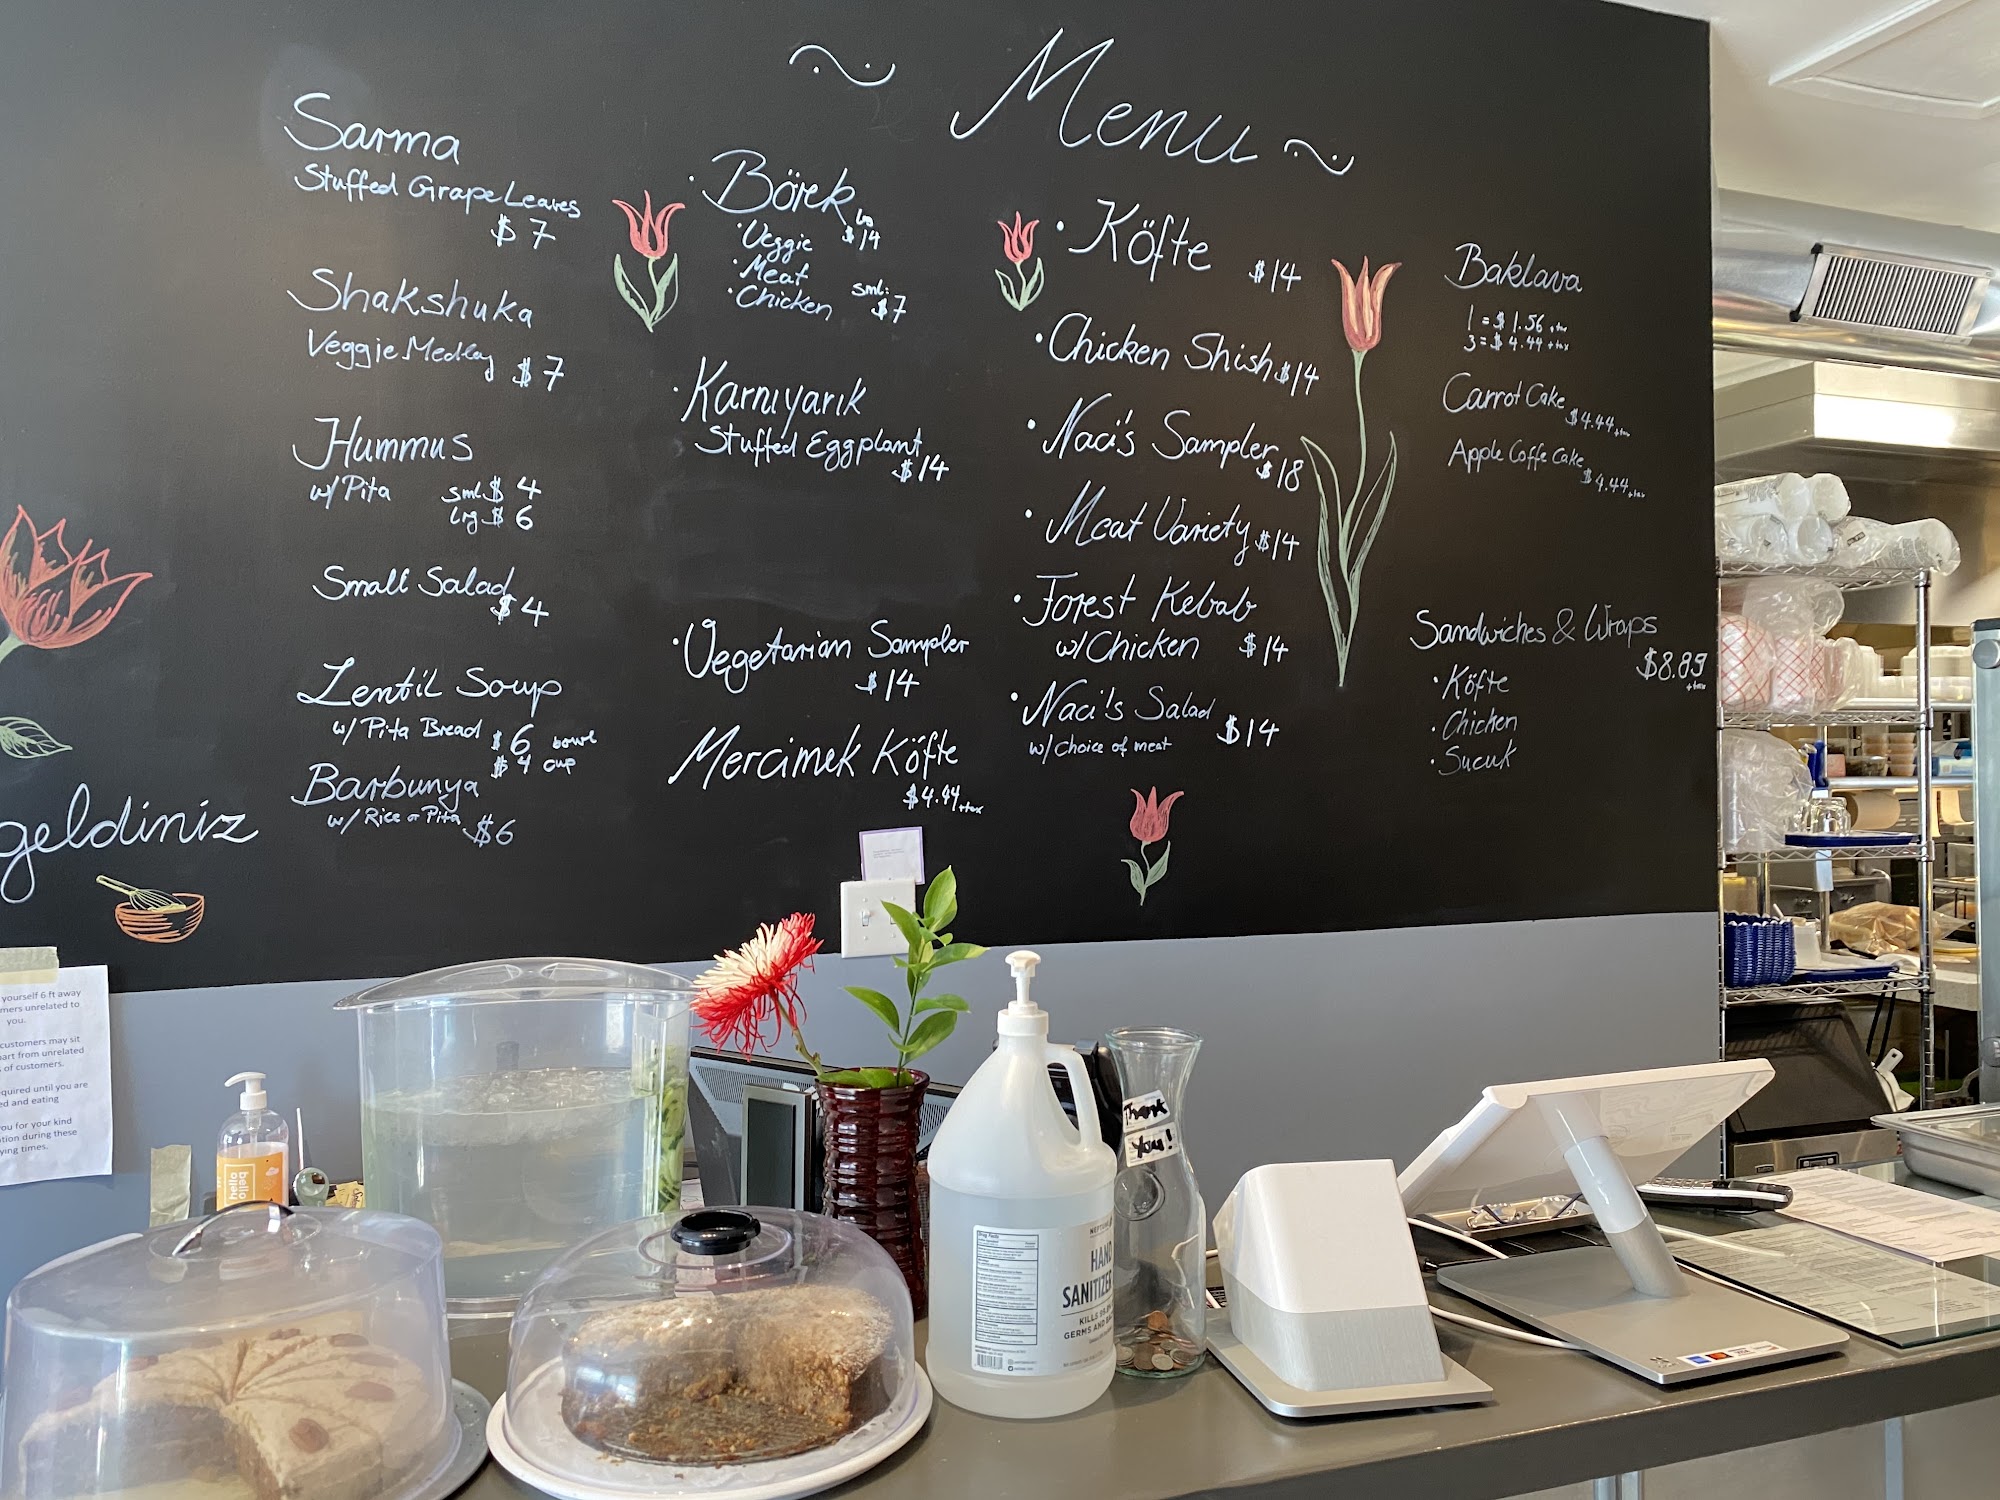 Menu
Sarma
Stuffed Grape Leaves
$7
Shakshuka
Veggie Medley $7
Hummus
w/ Pita sml $4
lrg $6
Small Salad
$4
Lentil Soup
w/ Pita Bread $6 bowl
$4 cup
Barbunya
w/ Rice or Pita $6
geldiniz
Börek
lrg
$14
Veggie
Meat
Chicken
sml:
$7
Karnıyarık
Stuffed Eggplant
$14
Vegetarian Sampler
$14
Mercimek Köfte
$4.44 +tax
Köfte $14
Chicken Shish $14
Naci's Sampler
$18
Meat Variety $14
Forest Kebab
w/ Chicken $14
Naci's Salad $14
w/ Choice of meat
Baklava
1 = $1.56 +tax
3 = $4.44 +tax
Carrot Cake
$4.44 +tax
Apple Coffe Cake
$4.44 +tax
Sandwiches & Wraps
$8.89
+tax
Köfte
Chicken
Sucuk
yourself 6 ft away
mers unrelated to
you.
customers may sit
part from unrelated
of customers.
quired until you are
ed and eating
ou for your kind
ation during these
ying times.
hello
bello
Thank
You!
HAND
SANITIZER
KILLS 99.9
GERMS AND BA